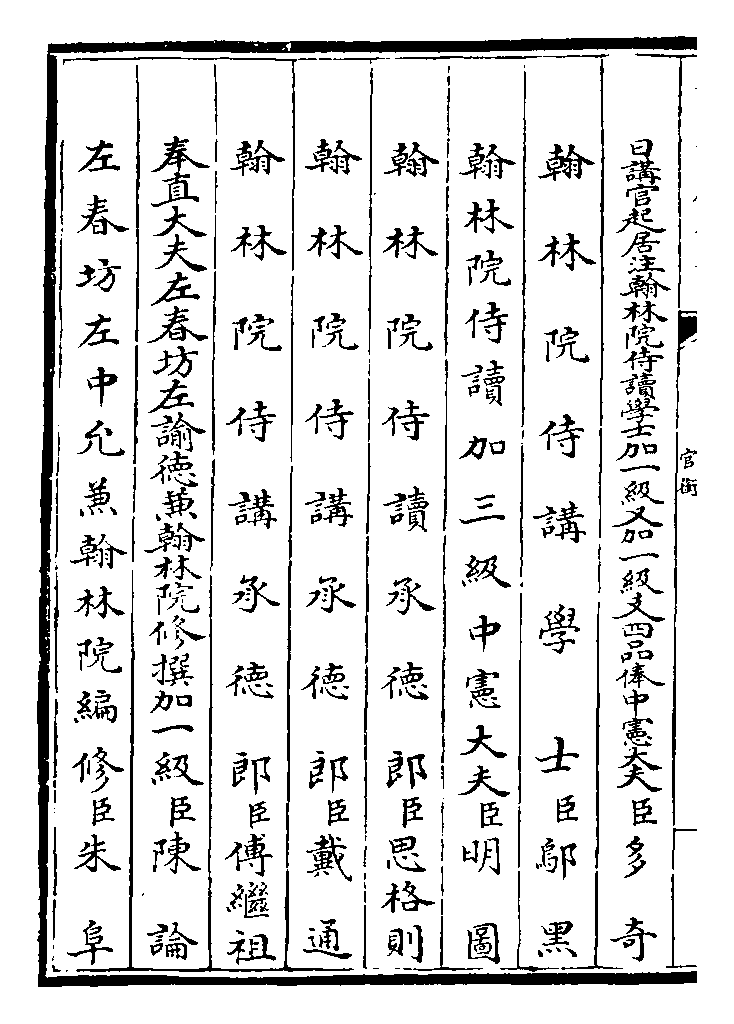 日講官起居注翰林院侍讀學士加一級又加一級支四品俸中憲大夫臣多奇
翰林院侍講學士臣鄔黑
翰林院侍讀加三級中憲大夫臣明圖
翰林院侍讀承德郎臣思格則
翰林院侍講承德郎臣戴通
翰林院侍講承德郎臣傅繼祖
奉直大夫左春坊左諭德兼翰林院修撰加一級臣陳論
左春坊左中允兼翰林院編修臣朱阜
官銜